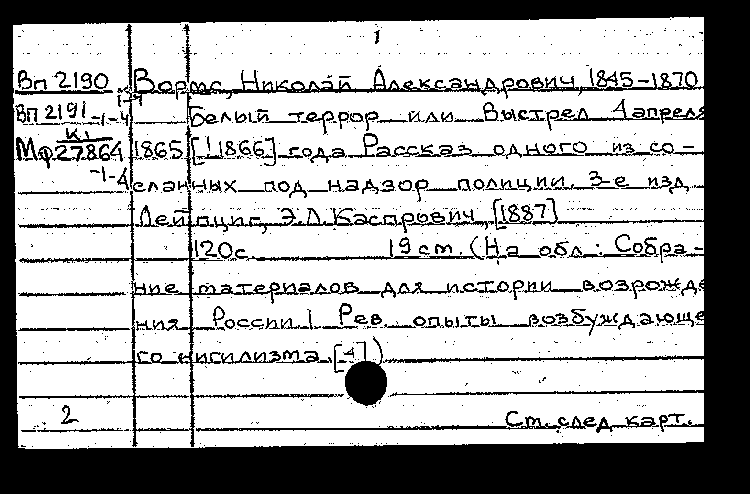 1
Вп 2190 -1-4 Вормс, Николай Александрович, 1845-1870
ВП 2191 -1-4 Белый террор или Выстрел 4 апреля
К1
Мф 27864 1865 [!1866] года Рассказ одного из со-
-1-4 сланных под надзор полиции. 3-е изд
Лейпциг, Э.Л. Каспрович, [1887]
120с. 19 см. (На обл: Собра-
ние материалов для истории возрожде
ния России. | Рев. опыты возбуждающе
го нигилизма. [4])
2 См. след карт.